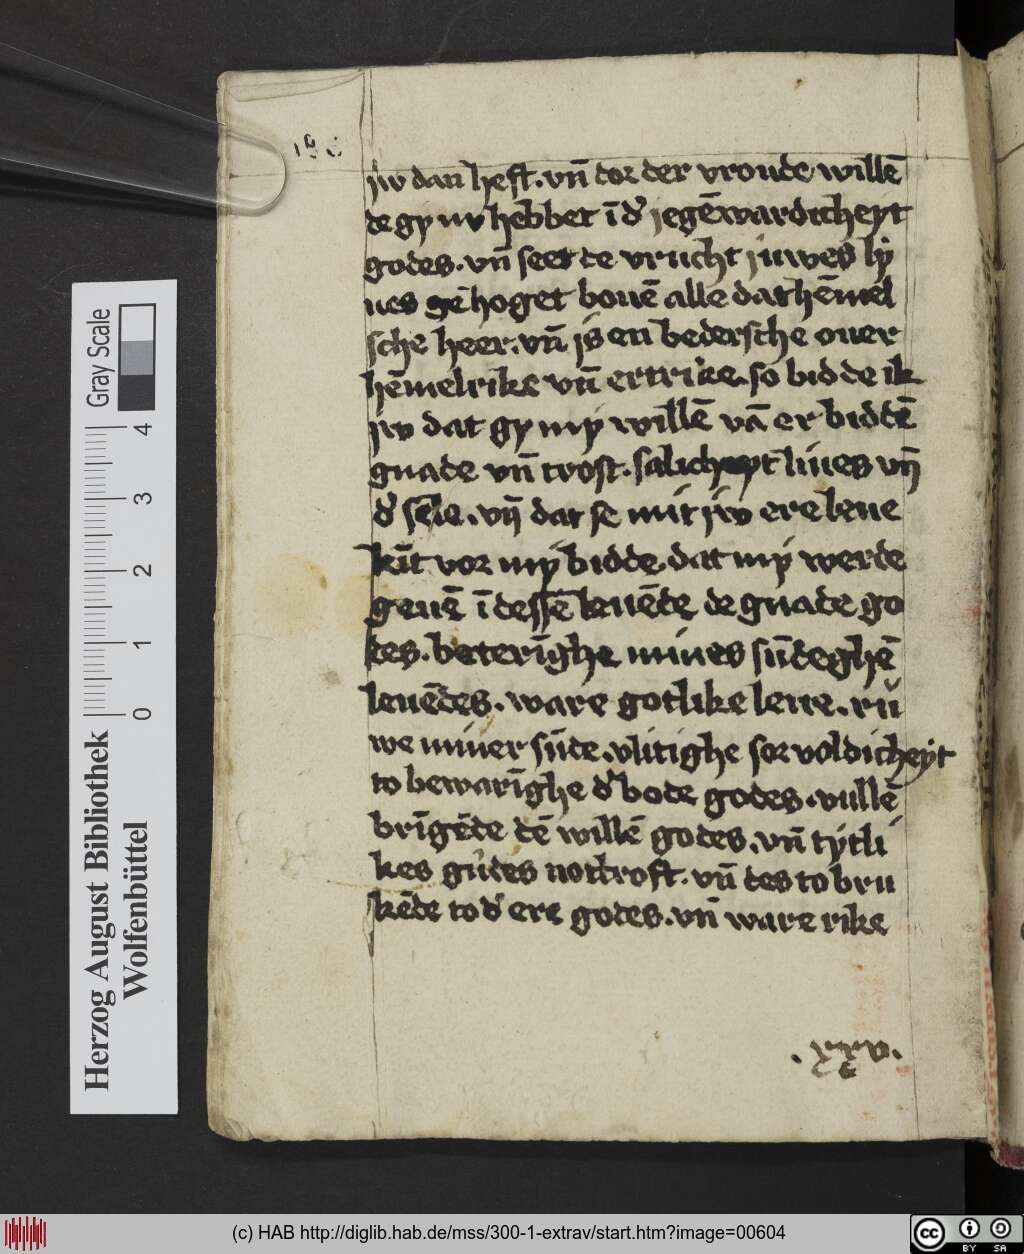 jw dan heft. vn̄ dor der vroude willē
de gy nv hebbet ī d' jegēwardicheyt
godes. vn̄ seet de vrucht juwes ly
ues gēhoget bouē alle dat hēmel
sche heer. vn̄ js en bedersche ouer
hēmelrike vn̄ ertrike. so bidde ik
jw dat gy my willē vā er biddē
gnade vn̄ trost. salicheyt liues vn̄
d' sele. vn̄ dat se mit jw ere leue
kīt vor my bidde. dat my werde
geuē ī dessē leuēde de gnade go
des. beterīghe mines sūdeghē
leuēdes. ware gotlike lere. rū
we miner sūde. vlitighe sorvoldicheyt
to bewarīghe d' bode godes. vullē
brīgēde dē willē godes. vn̄ tytli
kes gudes nottroft. vn̄ des to bru
kēde to d' ere godes. vn̄ ware rike
.xxv.
Herzog August Bibliothek
Wolfenbüttel
Gray Scale
0 1 2 3 4
(c) HAB http://diglib.hab.de/mss/300-1-extrav/start.htm?image=00604
cc BY SA